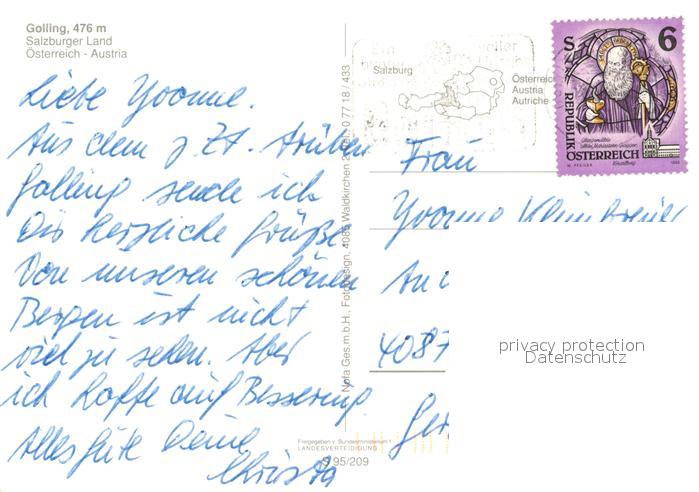 Golling, 476 m
Salzburger Land
Österreich - Austria
Liebe Yvonne.
Aus dem z Zt. trüben
Golling sende ich
Dir herzliche Grüße
Von unseren schönen
Bergen ist nicht
viel zu sehen. Aber
ich hoffe auf Besserung.
Alles Gute Deine
Christa
Nofa Ges.m.b.H., Fotodesign, 4085 Waldkirchen
0 77 18 / 433
Salzburg
Österreich
Austria
Autriche
S 6
REPUBLIK
ÖSTERREICH
Frau
Yvonne
An
4087
Ger
privacy protection
Datenschutz
Freigegeben v. Bundesministerium f.
LANDESVERTEIDIGUNG
S 95/209